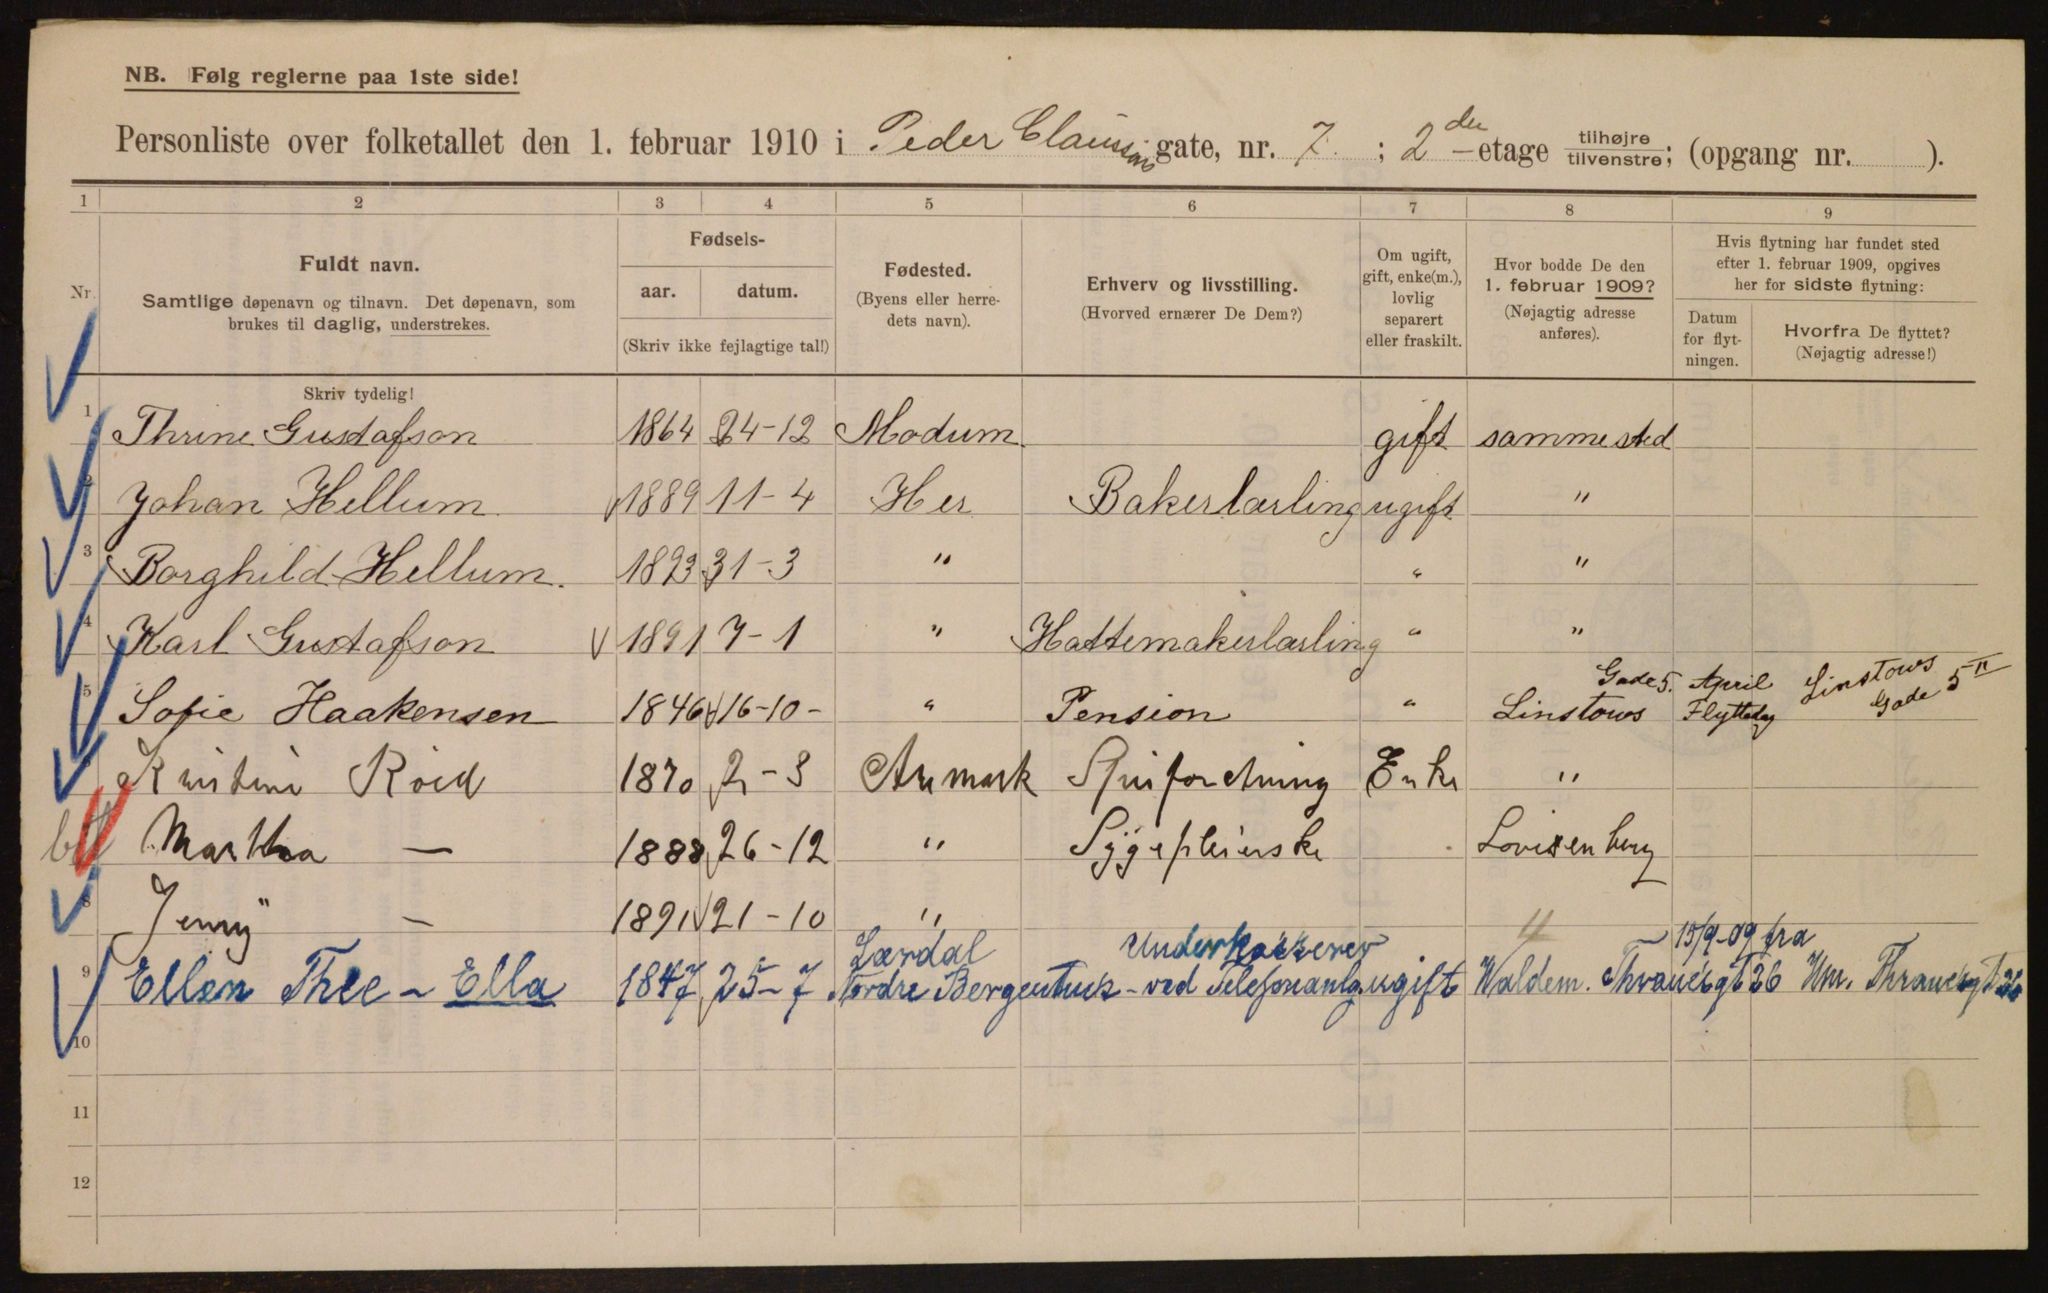 NB. Følg reglerne paa 1ste side!
Personliste over folketallet den 1. februar 1910 i Peder Claussøns gate, nr. 7 ; 2 den etage tilhøjre tilvenstre; (opgang nr. ).
1 2 3 4 5 6 7 8 9
Nr.
Fuldt navn.
Samtlige døpenavn og tilnavn. Det døpenavn, som
brukes til daglig, understrekes.
Fødsels-
aar. datum.
(Skriv ikke fejlagtige tal!)
Fødested.
(Byens eller herre-
dets navn).
Erhverv og livsstilling.
(Hvorved ernærer De Dem?)
Om ugift,
gift, enke(m.),
lovlig
separert
eller fraskilt.
Hvor bodde De den
1. februar 1909?
(Nøjagtig adresse
anføres).
Hvis flytning har fundet sted
efter 1. februar 1909, opgives
her for sidste flytning:
Datum
for flyt-
ningen.
Hvorfra De flyttet?
(Nøjagtig adresse!)
Skriv tydelig!
1 Thrine Gustafson 1864 24-12 Modum gift sammested
2 Johan Hellum 1889 11-4 Her Bakerlærling ugift "
3 Borghild Hellum. 1893 31-3 " " "
4 Karl Gustafson 1891 7-1 " Hattemakerlærling " "
5 Sofie Haakensen 1846 16-10- " Pension " Linstows Gade 5. April Flyttedag Linstows Gade 5 II
Kristine Roed 1870 2-3 Aremark Enke "
Martha — 1888 26-12 " Sygepleierske Lovisenberg
8 Jenny — 1891 21-10 "
9 Ellen Thee - Ella 1847 25-7 Lærdal Nordre Bergenhus Underkasserer ved Telefonanl. ugift Waldem. Thranesgt 26 15/9-09 fra Wm. Thranesgt 26
10
11
12